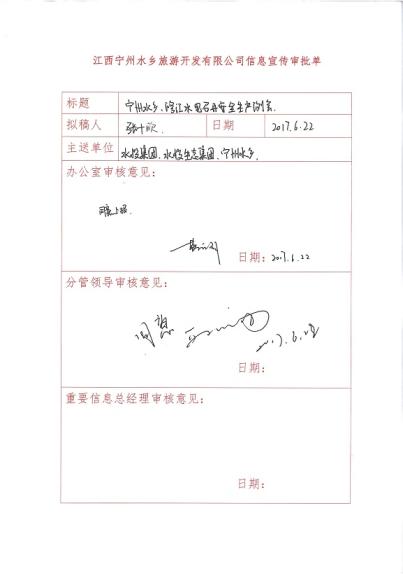 江西宁州水乡旅游开发有限公司信息宣传审批单
标题 宁州水乡、
拟稿人 日期 2017.6.22
主送单位 水投集团、水投生态集团、宁州水乡.
办公室审核意见:
日期: 2017.6.22
分管领导审核意见:
同意
2017.6.22
日期:
重要信息总经理审核意见:
日期: